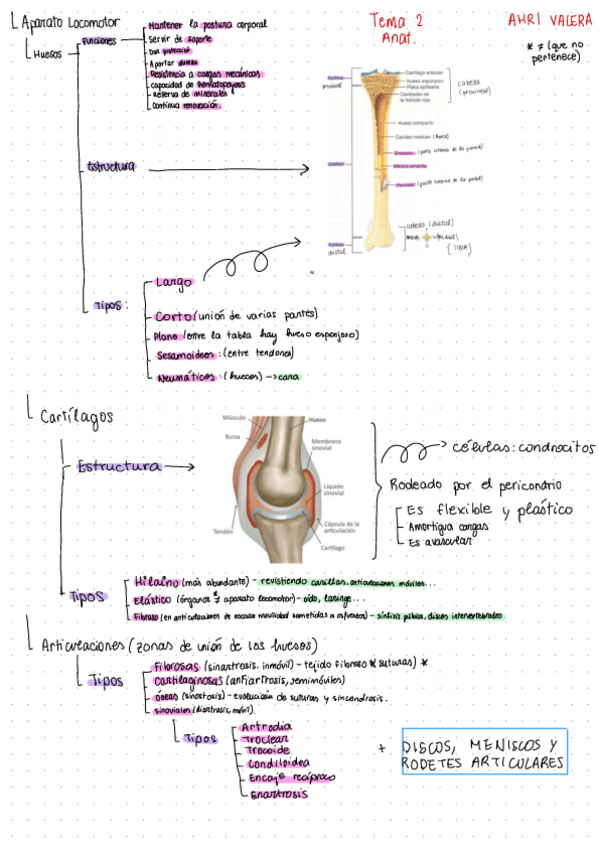 Aparato Locomotor
Tema 2
Anat.
AHRI VALERA
* ≠ (que no pertenece)
Huesos
Funciones
Mantener la postura corporal
Servir de soporte
Dar protección
Aportar
Resistencia a cargas mecánicas
capacidad de hematopoyesis
reserva de minerales
Continua renovación.
Cartílago articular
Hueso esponjoso
Placa epifisaria
Cavidades de la médula roja
cabeza (proximal)
proximal
Hueso compacto
Cavidad medular (hueca)
(parte interna de la pared)
Médula amarilla
(parte externa de la pared)
cabeza (distal)
distal
(TIBIA)
Estructura
Tipos:
Largo
Corto (unión de varias partes)
Plano (entre la tabla hay hueso esponjoso)
Sesamoideos: (entre tendones)
Neumáticos: (huecos) → cara
Cartílagos
Estructura
Músculo
Hueso
Bursa
Membrana sinovial
Líquido sinovial
Tendón
Cápsula de la articulación
Cartílago
células: condrocitos
Rodeado por el pericondrio
Es flexible y plástico
Amortigua cargas
Es avascular
Tipos
Hilaino (más abundante) - revistiendo carillas articulaciones móviles...
Elástico (órganos ≠* aparato locomotor) - oído, laringe...
Fibroso (en articulaciones de escasa movilidad sometidas a esfuerzos) - sínfisis púbica, discos intervertebrales
Articulaciones (zonas de unión de los huesos)
Tipos
Fibrosas (sinartrosis. inmóvil) - tejido fibroso (* suturas) *
cartilaginosas (anfiartrosis, semimóviles)
óseas (sinostosis) - evolución de suturas y sincondrosis.
sinoviales (diartrosis, móvil).
Tipos
Artrodia
Troclear
Trocoide
Condiloidea
Encaje recíproco
Enartrosis
+ DISCOS, MENISCOS Y
RODETES ARTICULARES